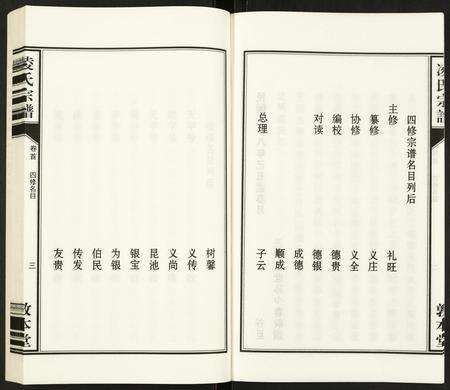 凌氏宗譜
敦本堂
四修宗谱名目列后
主修 礼旺
纂修 义庄
协修 义全
编校 德贵
对读 德银
成德
顺成
总理 子云
树馨
义传
义尚
昆池
银宝
为银
伯民
传发
友贵
凌氏宗譜
卷首 四修名目
三
敦本堂